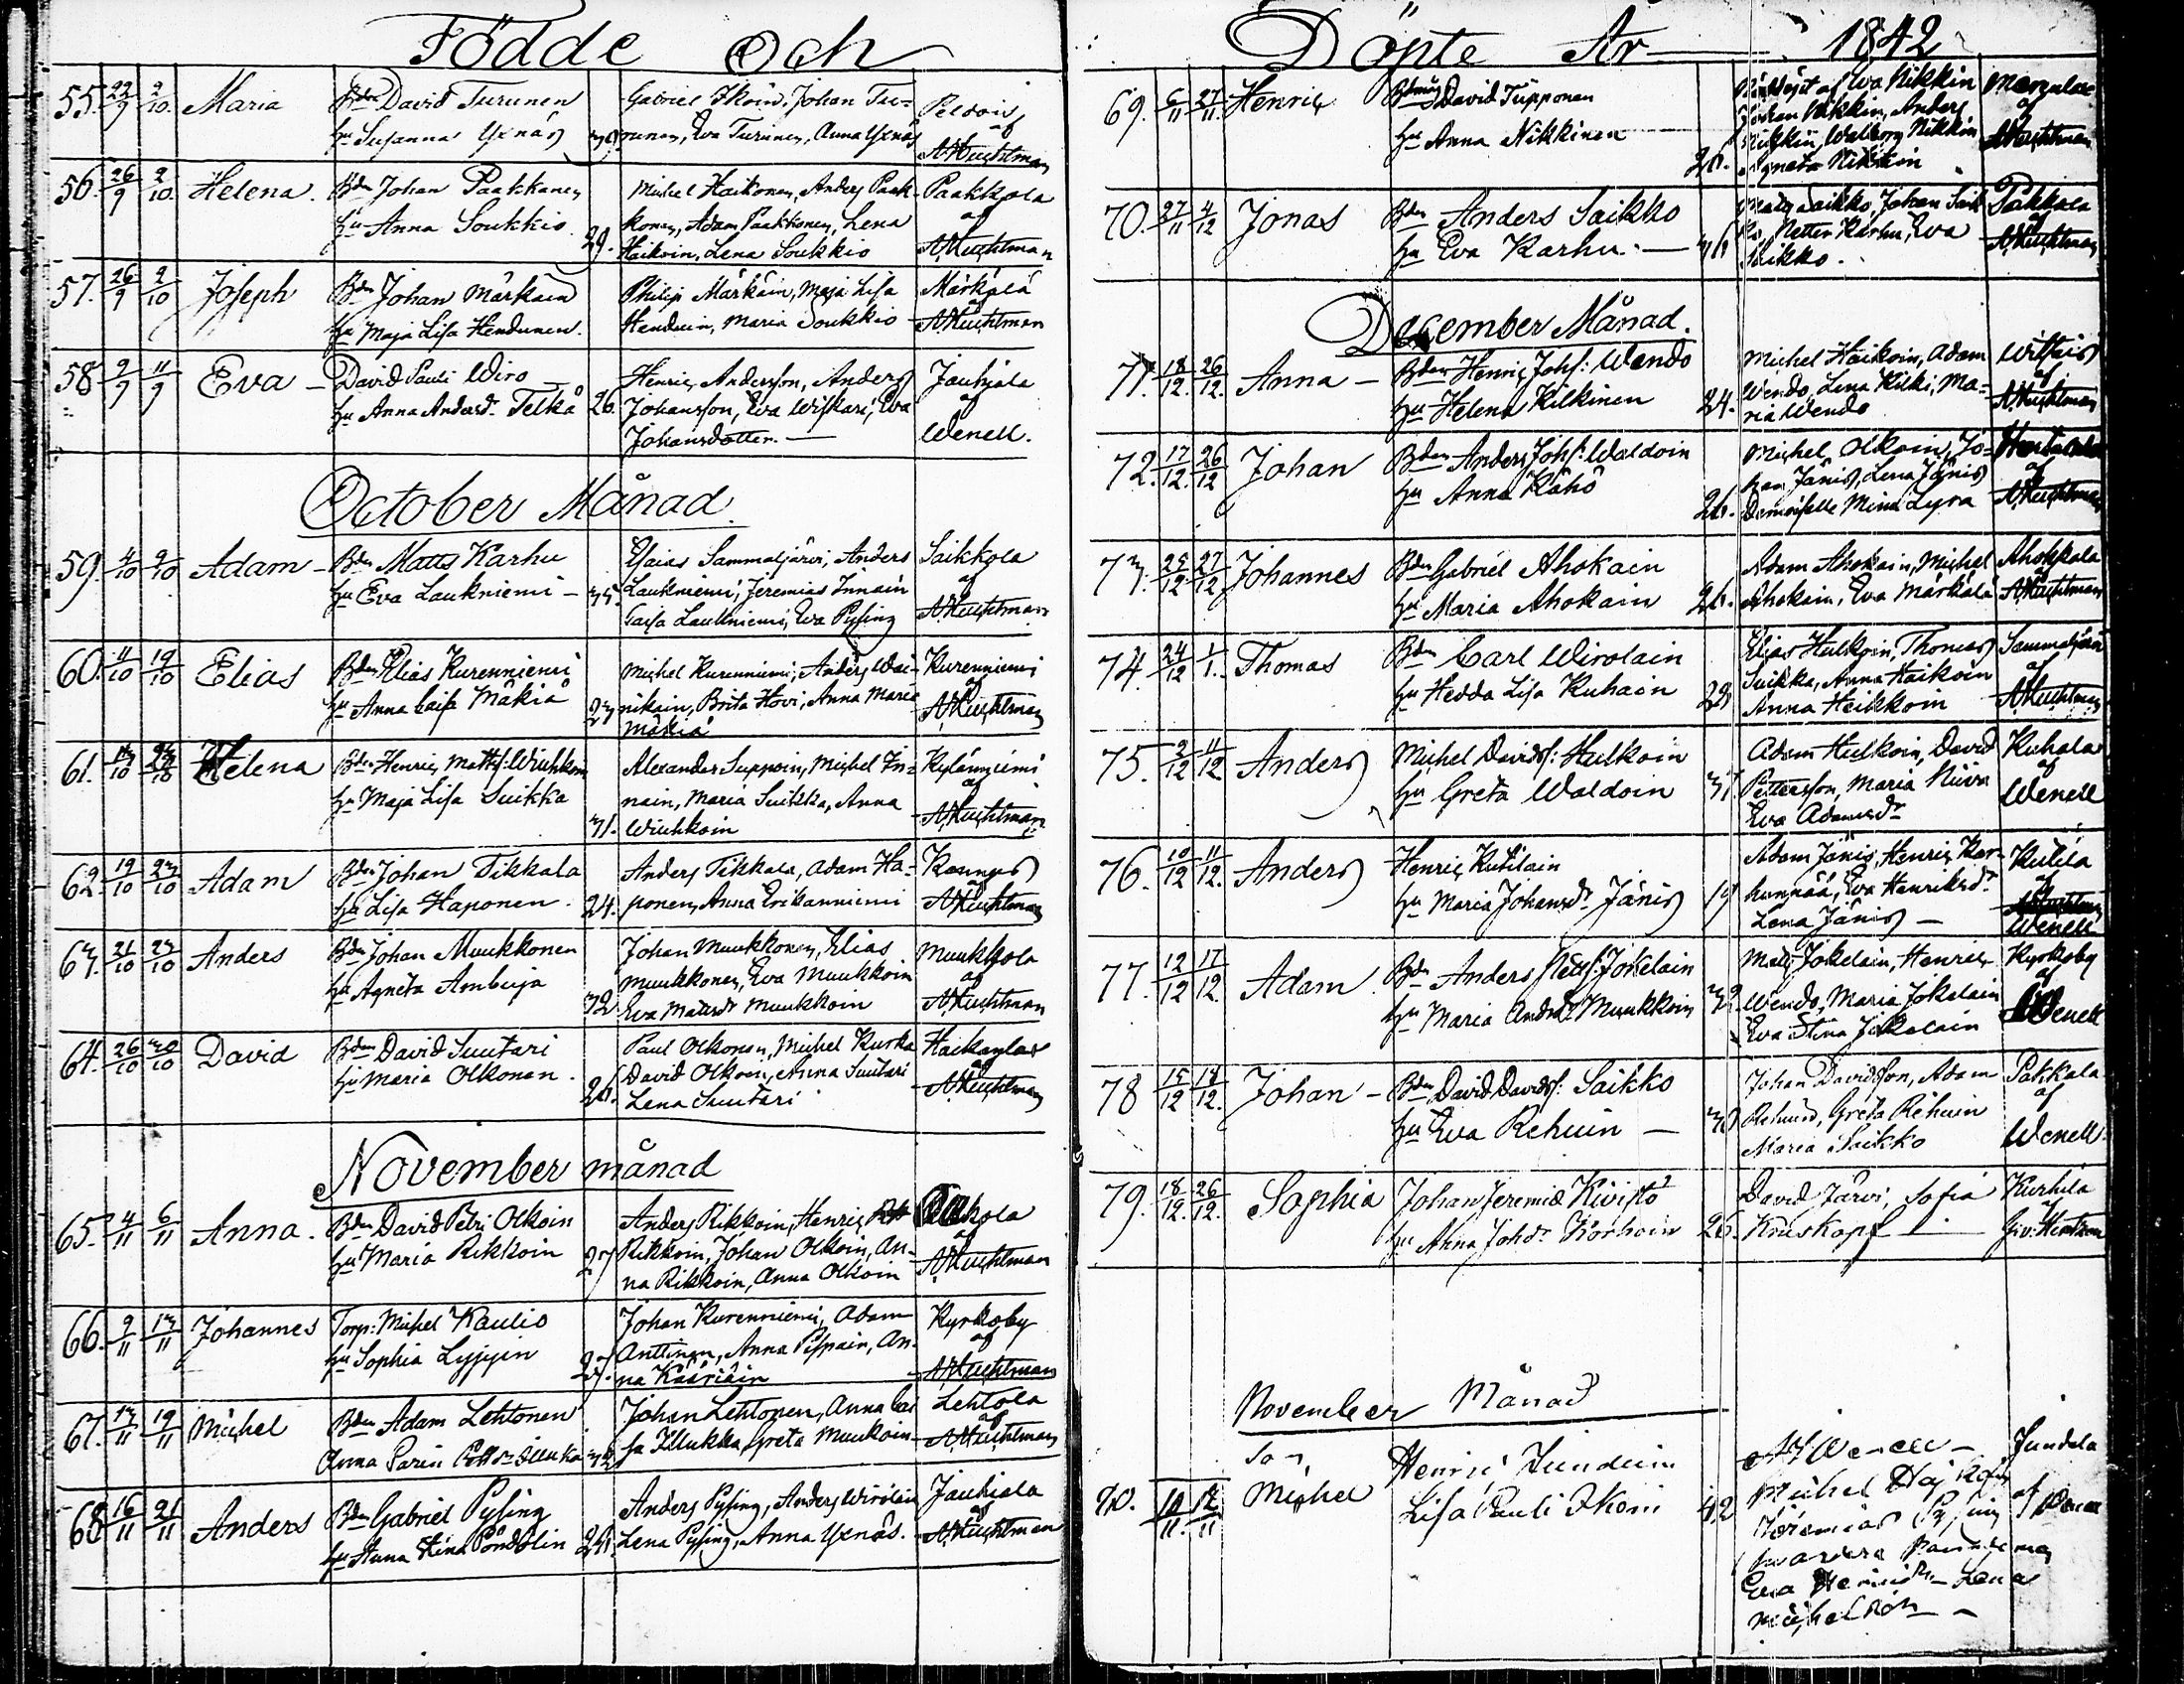 Födde Och
55. 22/9 2/10. Maria Bdn David Turunen Gabriel Ikoin, Johan Tu- Peldois
hu Susanna Yxnäs runen, Eva Turunen, Anna Yxnäs af
A. Kuchtman
56. 26/9 2/10. Helena. Bdn Johan Paakkanen Michel Haikonen, Anders Paak- Paakkola
hu Anna Soukkio 29. konen, Adam Paakkonen, Lena af
Haikoin, Lena Soukkio A. Kuchtman
57. 26/9 2/10 Joseph Bdn Johan Märkäin Philip Märkäin, Maja Lisa Märkälä
hu Maja Lisa Hendunen. Henduin, Maria Soukkio af A. Kuchtman
58 2/9 11/9 Eva – David Pauli Wiro Henric Andersson, Anders Jauhiala
hu Anna Andersd. Telkä 26. Johansson, Eva Wiskari, Eva af
Johansdotter. — Wenell.
October Månad.
59. 4/10 9/10 Adam – Bdn Matts Karhu Esaias Sammaljärvi, Anders Saikkola
hu Eva Laukniemi – 35. Laukniemi, Jeremias Innain af
Caisa Laukniemi, Eva Pysing A. Kuchtman
60. 11/10 19/10 Elias Bdn Elias Kurenniemi Michel Kurenniemi, Anders Wai- Kurenniemi
hu Anna Caisa Mäkiä 23 nikain, Brita Hovi, Anna Maria af
Mäkiä A. Kuchtman
61. 13/10 23/10 Helena Bdn Henric Matts: Wiuhkoin Alexander Suppoin, Michel In- Kylänniemi
hu Maja Lisa Suikka nain, Maria Suikka, Anna af
31. Wiuhkoin A. Kuchtman
62. 19/10 23/10 Adam Bdn Johan Tikkala Anders Tikkala, Adam Ha- Kannus
hu Lisa Haponen. 24. ponen, Anna Erikanniemi A. Kuchtman
63. 21/10 23/10 Anders Bdn Johan Muukkonen Johan Muukkonen, Elias Muukkola
hu Agneta Ambuja Muukkonen, Eva Muukkoin af
32. Eva Matsdr Muukkoin A. Kuchtman
64. 26/10 30/10 David Bdn David Suutari Paul Olkonen, Michel Kurka
hu Maria Olkonen. 26. David Olkoin, Anna Suutari af
Lena Suutari A. Kuchtman
November månad
65. 4/11 6/11 Anna. Bdn David Petri Olkoin Anders Rikkoin, Henric
hu Maria Rikkoin 27 Rikkoin, Johan Olkoin, An- af
na Rikkoin, Anna Olkoin A. Kuchtman
66. 9/11 13/11 Johannes Torp: Michel Kaulio Johan Kurenniemi, Adam Kyrkoby
hu Sophia Lyjyin Anttinen, Anna Pispain, An- af
27. na Kääriäin A. Kuchtman
67. 13/11 19/11 Michel Bdn Adam Lehtonen Johan Lehtonen, Anna Cai Lehtola
sa Illukka, Greta Muukoin af A. Kuchtman
68 16/11 21/11 Anders Bdn Gabriel Pysing Anders Pysing, Anders Wirolain Jauhiala
hu Anna Stina Pöndölin 28. Lena Pysing, Anna Yxnäs. af A. Kuchtman
Döpte År 1842
69. 6/11 27/11. Henric David Tüpponen Eva Nikkin
hu Anna Nikkinen Johan Nikkin, Anders af
Nikkin, Walborg Nikkin A. Kuchtman
26. Agneta Nikkin
70. 27/11 4/12 Jonas Bdn Anders Saikko Matts Saikko, Johan Saik Pakkala
hu Eva Karhu. — 36 ko, Petter Karhu, Eva af
Saikko. A. Kuchtman
December Månad.
71. 18/12. 26/12. Anna – Bdn Henric Johs: Wendo Michel Haikoin, Adam
hu Helena Kilkinen 24. Wendo, Lena Kilki, Ma- af
ria Wendo A. Kuchtman
72. 17/12. 26/12 Johan Bdn Anders Johs: Waldoin Michel Olkoin, Jo-
hu Anna Kähö han Jänis, Lena Jänis af
26. Demoiselle Mina Lyra A. Kuchtman
73. 25/12 27/12 Johannes Bdn Gabriel Ahokain Adam Ahokain, Michel Ahokkala
hu Maria Ahokain 26. Ahokain, Eva Märkälä af A. Kuchtman
74. 24/12 1/1. Thomas Bdn Carl Wirolain Elias Hulkoin, Thomas Sammaljärvi
hu Hedda Lisa Kuhain Suikka, Anna Haikoin af
28 Anna Heikkoin A. Kuchtman
75. 2/12 11/12 Anders Michel Davids: Hulkoin Adam Hulkoin, David Kuhala
hu Greta Waldoin Pettersson, Maria Niiva af
Eva Adamsdr Wenell
76. 10/12 11/12. Anders Henric Kutilain Adam Jänis, Henric Kar- Kutila
hu Maria Johansdr Jänis 19 hunpää, Eva Henriksdr af
Lena Jänis — Wenell
77. 12/12 17/12. Adam Bdn Anders Jokelain Matts Jokelain, Henric Kyrkoby
hu Maria Andrsdr Muukkoin 32. Wendo, Maria Jokelain af
Eva Stina Jokelain Wenell
78 15/12 18/12. Johan – Bdn David Davids: Saikko Johan Davidsson, Adam Pakkala
hu Eva Rehuin — 30 Rehuin, Greta Rehuin af
Maria Saikko Wenell
79. 18/12. 26/12. Sophia Johan Jeremiæ Kivistö David Järvi, Sofia Kurhila
hu Anna Johdr Korhoin 26. Kruskopf —
November Månad
Son Henric Hinduin Wenell – Jundela
80. 10/11. 12/11 Michel Lisa Pauli Ikoni 42 Michel af
Jeremias Pysing Wenell
Eva Henricdr – Lena